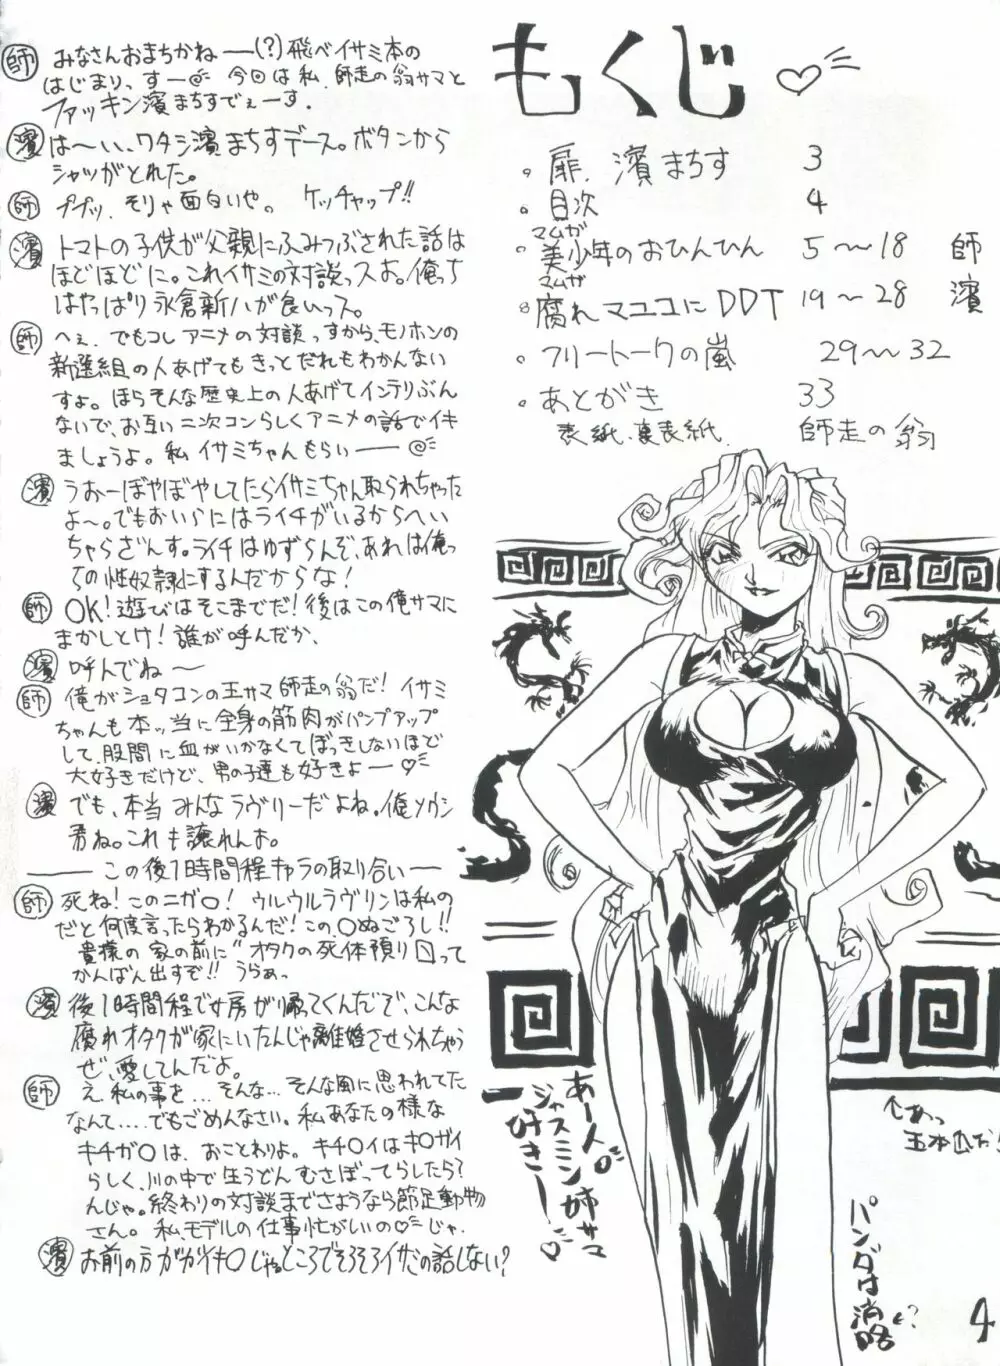 もくじ
・扉 濱まちす 3
・目次 4
マムガ
・美少年のおひんひん 5～18 師
マムガ
・腐れマユコにDDT 19～28 濱
・フリートークの嵐 29～32
・あとがき 33
表紙、裏表紙 師走の翁
師 みなさんおまちかねー(?)飛べイサミ本の
はじまりっすー 今回は私、師走の翁サマと
ファッキン濱まちすでぇーす.
濱 は～い、ワタシ濱まちすデース。ボタンから
シャツがとれた。
師 ププッ、そりゃ面白いや。 ケッチャップ!!
濱 トマトの子供が父親にふみつぶされた話は
ほどほどに。これイサミの対談っスよ。俺っち
はやっぱり永倉新八が良いっス。
師 へぇ、でもコレアニメの対談っすから、モノホンの
新選組の人あげてもきっとだれもわかんない
すよ。ほらそんな歴史上の人あげてインテリぶん
ないで、お互い二次コンらしくアニメの話でイキ
ましょうよ。私イサミちゃんもらいー
濱 うおーぼやぼやしてたらイサミちゃん取られちゃった
よ～。でもおいらにはライチがいるからへい
ちゃらざんす。ライチはゆずらんぞ、あれは俺っ
ちの性奴隷にするんだからな!
師 OK!遊びはそこまでだ!後はこの俺サマに
まかしとけ!誰が呼んだか、
濱 呼んでね～
師 俺がショタコンの王サマ師走の翁だ! イサミ
ちゃんも本ッ当に全身の筋肉がパンプアップ
して、股間に血がいかなくてぼっきしないほど
大好きだけど、男の子達も好きよー♡
濱 でも、本当みんなラヴリーだよね。俺ソウシ
君ね。これも譲れんよ。
― この後1時間程キャラの取り合い ―
師 死ね!このニガ○! ウルウルラヴリンは私の
だと何度言ったらわかるんだ!この、○ぬごろし!!
貴様の家の前に"オタクの死体預り□って
かんばん出すぞ!! うらぁっ
濱 後1時間程で女房が帰ってくんだで、こんな
腐れオタクが家にいたんじゃ離婚させられちゃう
ぜ、愛してんだよ。
師 え、私の事を…そんな…そんな風に思われてた
なんて……でもごめんなさい。私あなたの様な
キチガ○は、おことわりよ。キチ○イはキ○ガイ
らしく、川の中で生うどんむさぼってらしたら?
んじゃ。終わりの対談までさようなら節足動物
さん。私モデルの仕事忙がしいの♡じゃ.
濱 お前の方が
ところでそろそろイサミの話しない?
あー人。
ジャスミン姉サマ
好きー♡
↑あっ
パンダは消略 ?
4